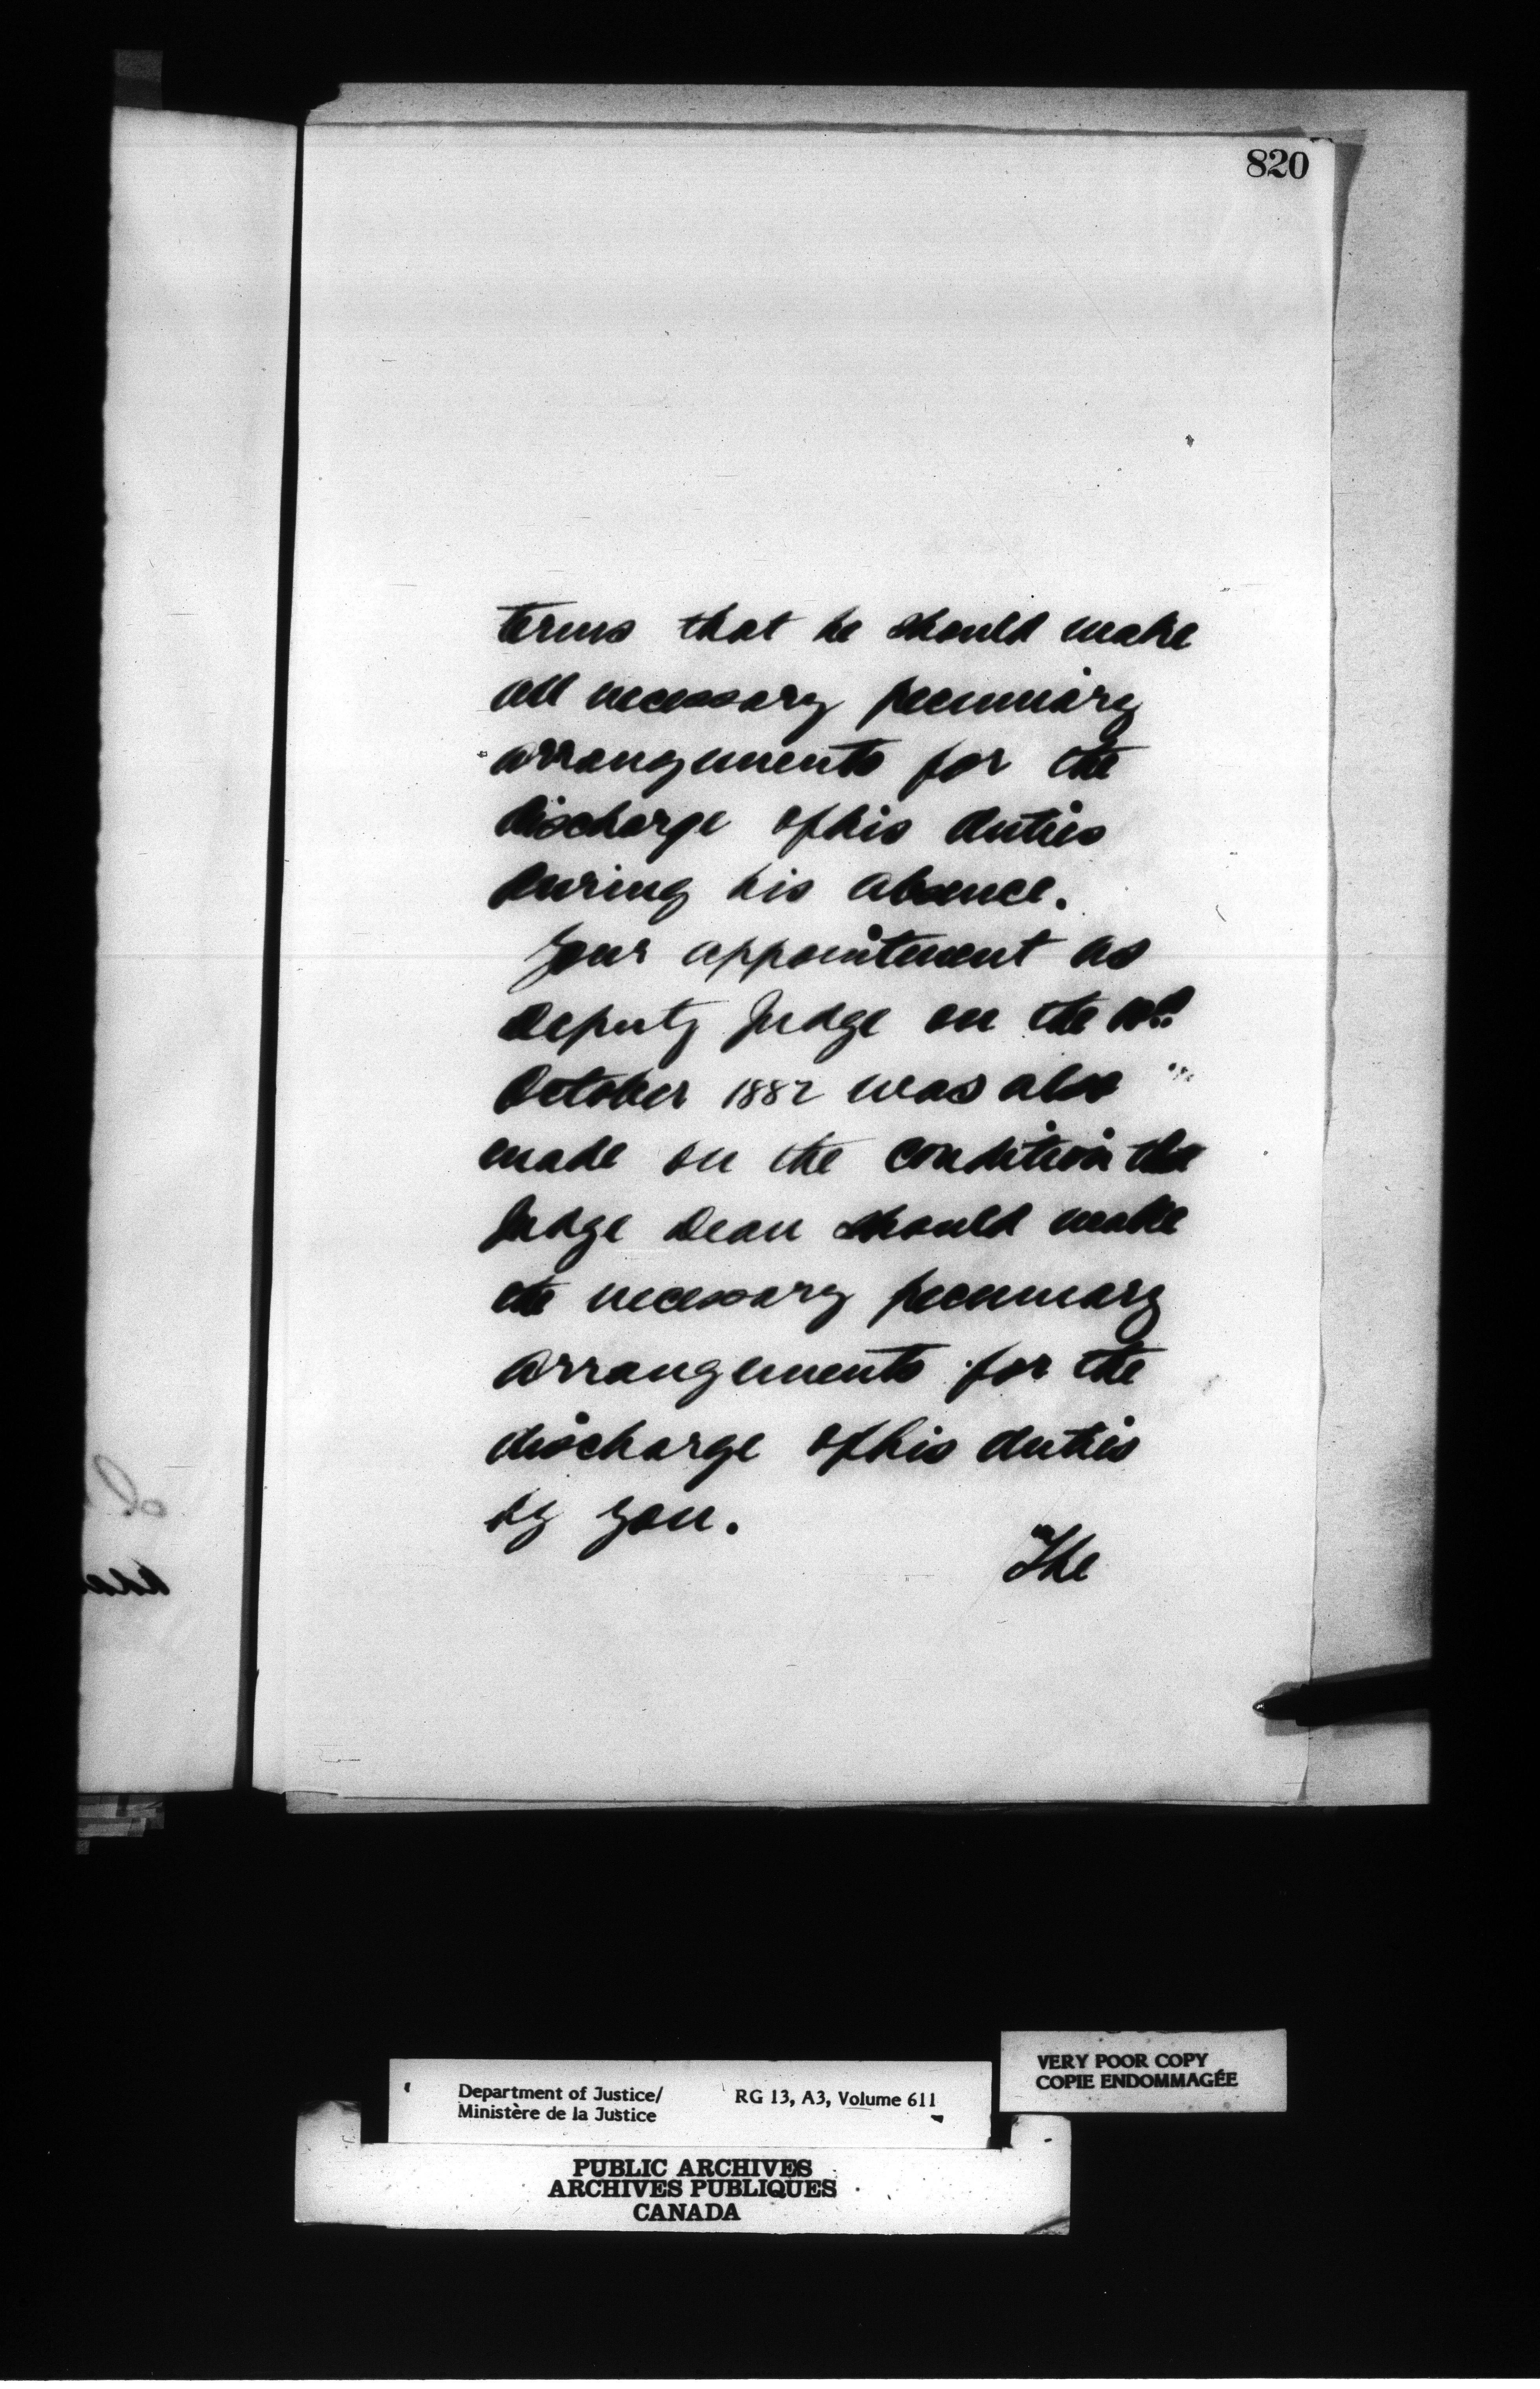 820
terms that he should make
all necessary pecuniary
arrangements for the
discharge of his duties
during his absence.
Your appointment as
Deputy Judge on the
October 1882 was also
made on the condition tha
Judge Dean should make
the necessary pecuniary
arrangements for the
discharge of his duties
by you.
The
VERY POOR COPY
COPIE ENDOMMAGÉE
Department of Justice/ RG 13, A3, Volume 611
Ministère de la Justice
PUBLIC ARCHIVES
ARCHIVES PUBLIQUES
CANADA